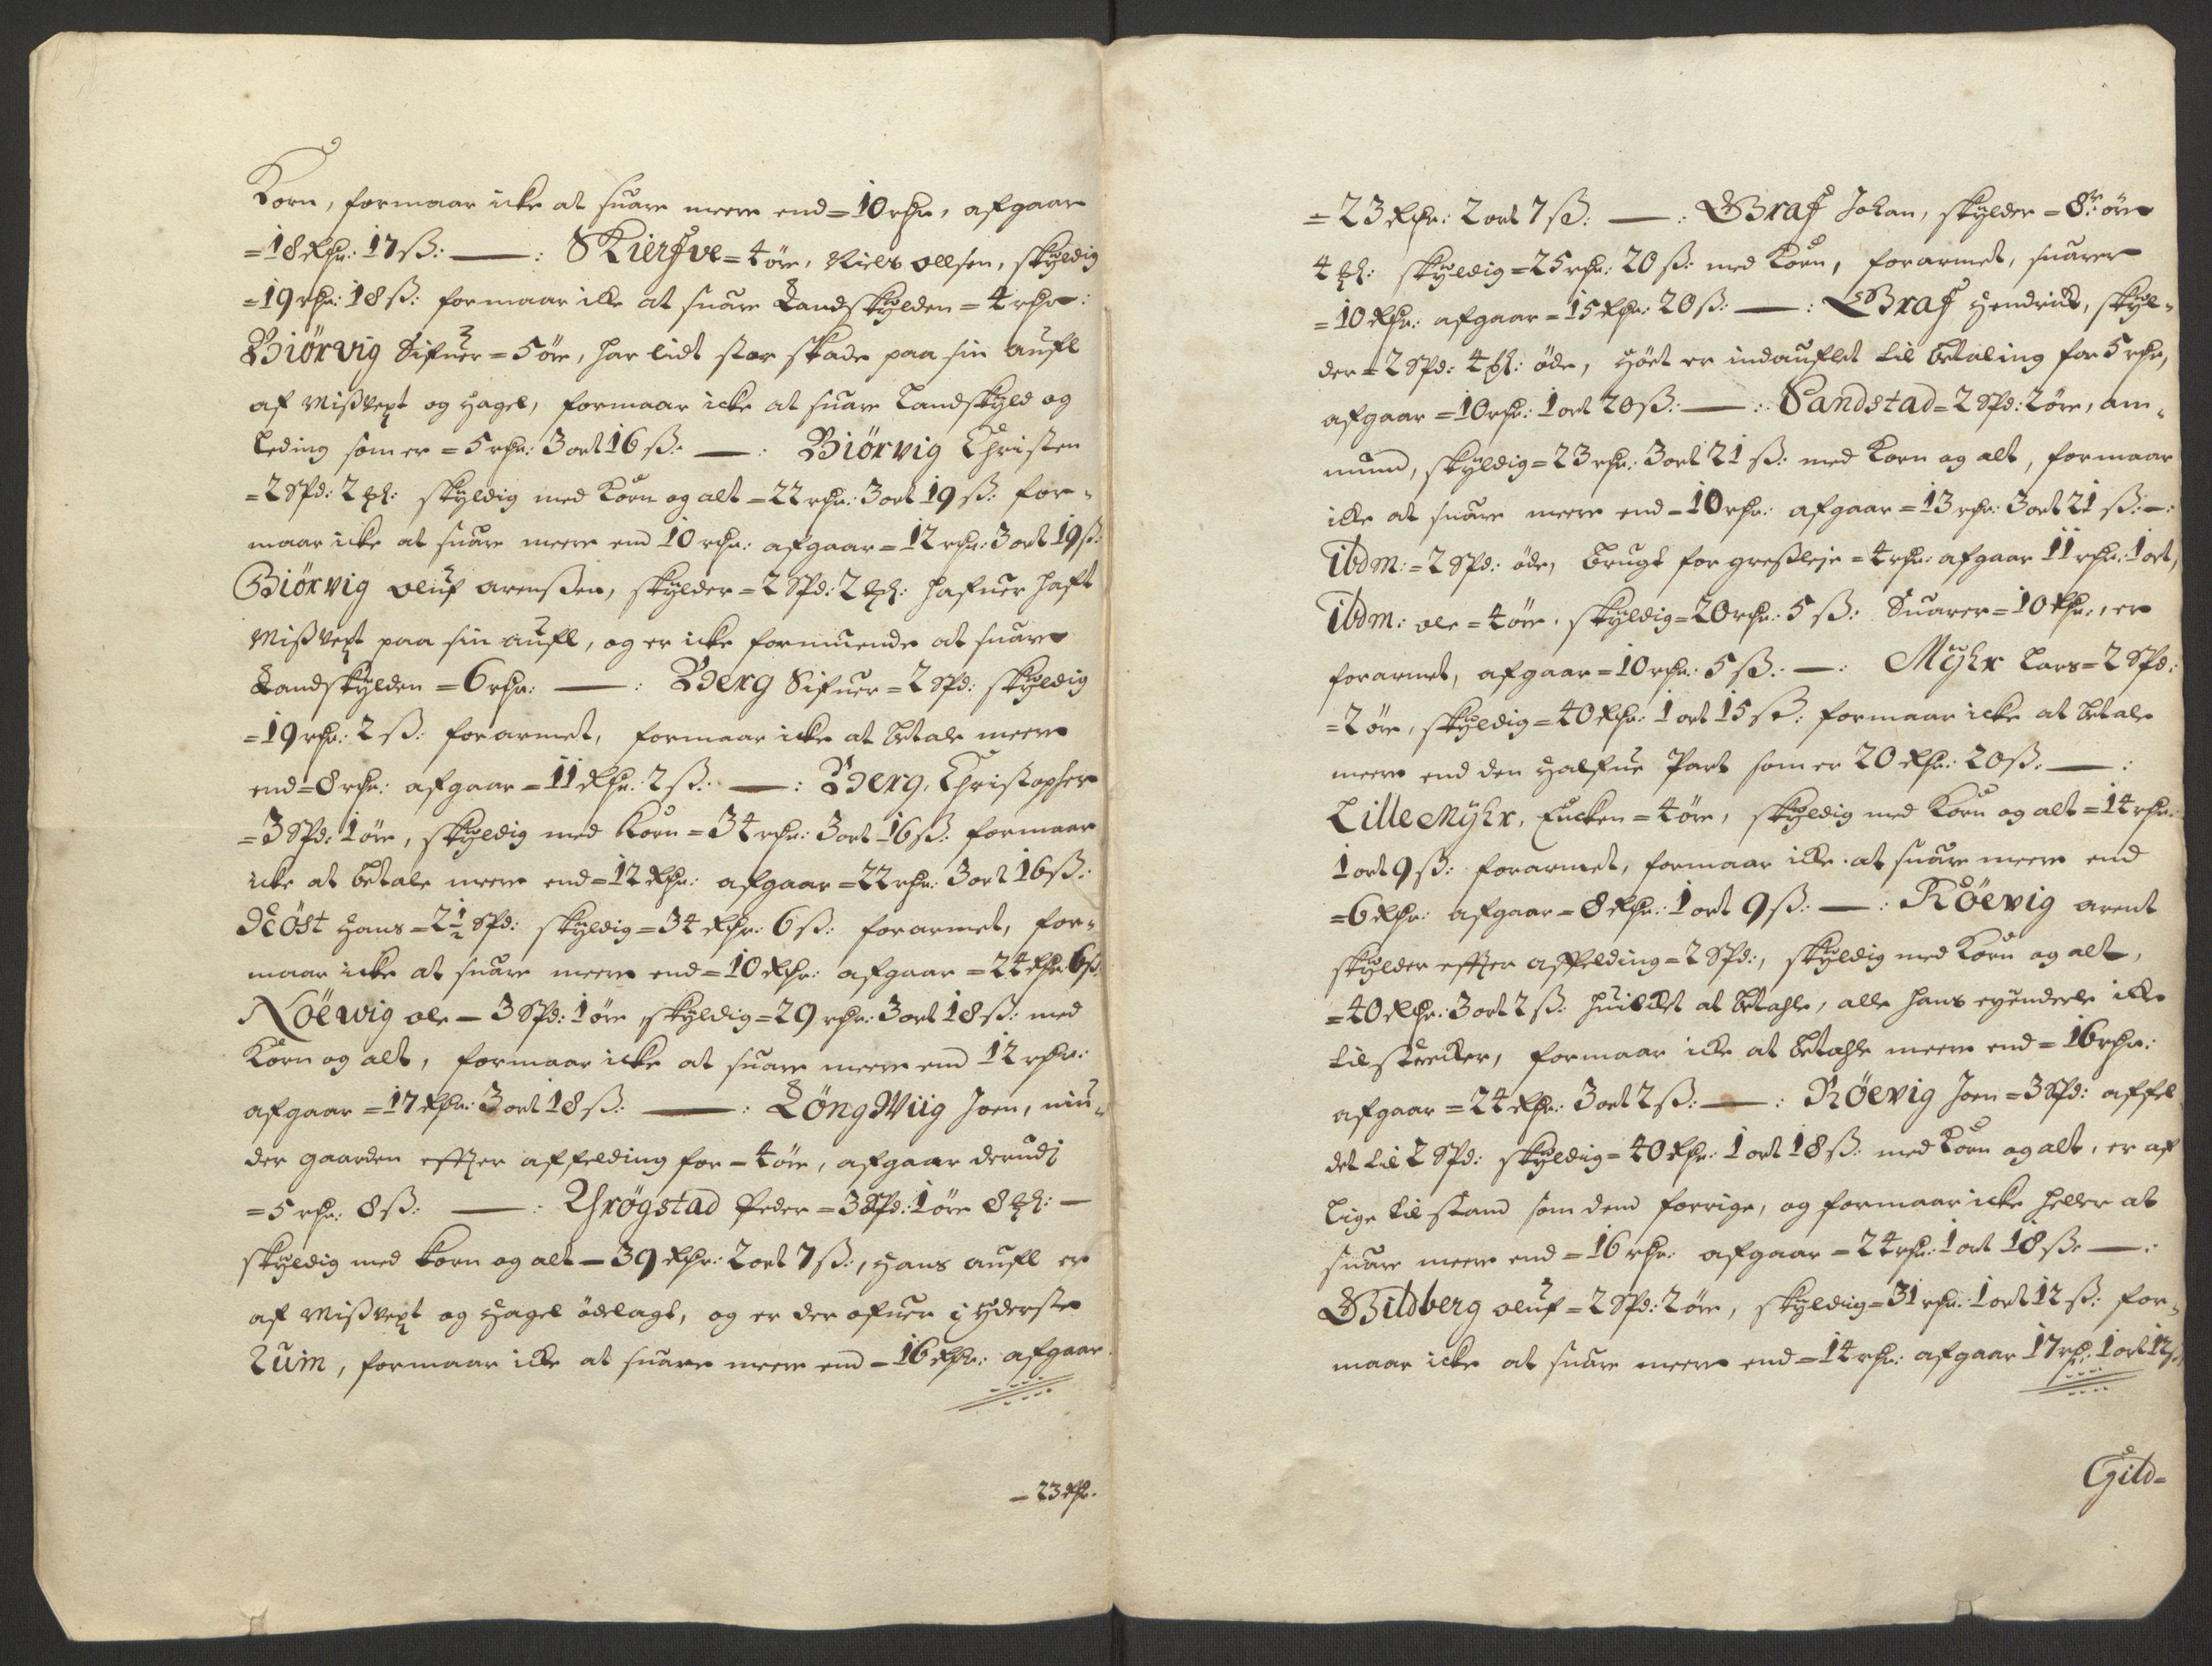 Korn, formaar icke at suare meere end = 10 rdr, afgaar
= 18 Rdr: 17 ß: —: Skierfve = 4 öre, Niels ollsen, skyldig
= 19 rdr: 18 ß: formaar icke at suare Landskylden = 4 rdr:
Biörvig Sifuer = 5 öre, har lidt stor skade paa sin aufl
af Mißvext og Hagel, formaar icke at suare Landskyld og
Leding som er = 5 rdr: 3 ort 16 ß: —: Biörvig Christen
= 2 Spd: 2 mkl: skyldig med Korn og alt = 22 rdr: 3 ort 19 ß: for-
maar icke at suare meere end 10 rdr: afgaar = 12 rdr: 3 ort 19 ß:
Biörvig oluf arenßen, skylder = 2 Spd: 2 mkl: hafuer haft
Mißvext paa sin aufl, og er icke formuende at suare
Landskylden = 6 rdr: —: Berg Sifuer = 2 Spd: skyldig
= 19 rdr: 2 ß: forarmet, formaar icke at betale meere
end = 8 rdr: afgaar = 11 Rdr: 2 ß: —: Berg, Christopher
= 3 Spd: 1 öre, skyldig med Korn = 34 rdr: 3 ort 16 ß: formaar
icke at betale meere end = 12 Rdr: afgaar = 22 rdr: 3 ort 16 ß:
Höst Hans = 2 1/2 Spd: skyldig = 34 Rdr: 6 ß: forarmet, for-
maar icke at suare meere end = 10 Rdr: afgaar = 24 Rdr 6 ß
Röewig ole = 3 Spd: 1 öre, skyldig = 29 rdr: 3 ort 18 ß: med
Korn og alt, formaar icke at suare meere end 12 rdr:
afgaar = 17 Rdr: 3 ort 18 ß: —: Löng Wiig Joen, niu-
der gaarden effter affelding for = 4 öre, afgaar derudj
= 5 rdr: 8 ß: —: Yrögstad Peder = 3 Spd: 1 öre 8 mkl: —
skyldig med Korn og alt = 39 Rdr: 2 ort 7 ß:, Hans aufl er
af Mißvext og Hagel ödelagt, og er der ofuer j yderste
Ruin, formaar icke at suare meere end = 16 Rdr: afgaar
= 23 Rdr.
= 23 Rdr: 2 ort 7 ß: —: Graf Johan, skylder = 8 öre
4 mkl: skyldig = 25 rdr: 20 ß: med Korn, forarmet, suarer
= 10 Rdr: afgaar = 15 Rdr: 20 ß: —: Graf Hendrich, skyl-
der = 2 Spd: 4 mkl: öde, Höet er indauflet til betaling for 5 rdr,
afgaar = 10 rdr: 1 ort 20 ß: —: Sandstad = 2 Spd: 2 öre, am-
mund, skyldig = 23 rdr: 3 ort 21 ß: med Korn og alt, formaar
icke at suare meere end = 10 rdr: afgaar = 13 rdr: 3 ort 21 ß: —:
Ibdm: = 2 Spd: öde, brugt for græsleje = 4 rdr: afgaar 11 rdr: 1 ort,
Ibdm: ole = 4 öre, skyldig = 20 rdr: 5 ß: Suarer = 10 Rdr:, er
forarmet, afgaar = 10 rdr: 5 ß: —: Myhr Lars = 2 Spd:
= 2 öre, skyldig = 40 Rdr: 1 ort 15 ß: formaar icke at betale
meere end den Halfue Part som er 20 Rdr: 20 ß: —:
Lille Myhr, Encken = 4 öre, skyldig med Korn og alt = 14 rdr:
1 ort 9 ß: forarmet, formaar icke at suare meere end
= 6 Rdr: afgaar = 8 Rdr: 1 ort 9 ß: —: Röevig arent
skylder effter affelding = 2 Spd:, skyldig med Korn og alt,
= 40 Rdr: 3 ort 2 ß: huilcket at betahle, alle hans eyendeele icke
tilstrecker, formaar icke at betahle meere end = 16 rdr:
afgaar = 24 Rdr: 3 ort 2 ß: —: Röevig Joen = 3 Spd: affel
det til 2 Spd: skyldig = 40 Rdr: 1 ort 18 ß: med Korn og alt, er af
lige tilstand som dend forrige, og formaar icke heller at
suare meere end = 16 rdr: afgaar = 24 rdr: 1 ort 18 ß: —:
Gildberg oluf = 2 Spd: 2 öre, skyldig = 31 rdr: 1 ort 12 ß: for-
maar icke at suare meere end = 14 rdr: afgaar 17 rdr: 1 ort 12 ß
Gild-